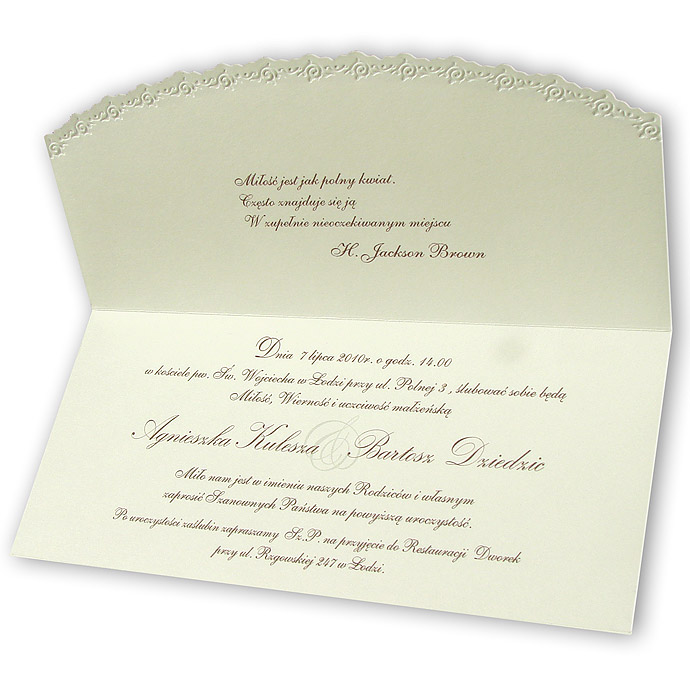 Miłość jest jak polny kwiat.
Często znajduje się ją
W zupełnie nieoczekiwanym miejscu
H. Jackson Brown
Dnia 7 lipca 2010r. o godz. 14.00
w kościele pw. Św. Wojciecha w Łodzi przy ul. Polnej 3 , ślubować sobie będą
Miłość, Wierność i uczciwość małżeńską
Agnieszka Kulesza & Bartosz Dziedzic
Miło nam jest w imieniu naszych Rodziców i własnym
zaprosić Szanownych Państwa na powyższą uroczystość.
Po uroczystości zaślubin zapraszamy Sz.P. na przyjęcie do Restauracji Dworek
przy ul. Rzgowskiej 247 w Łodzi.